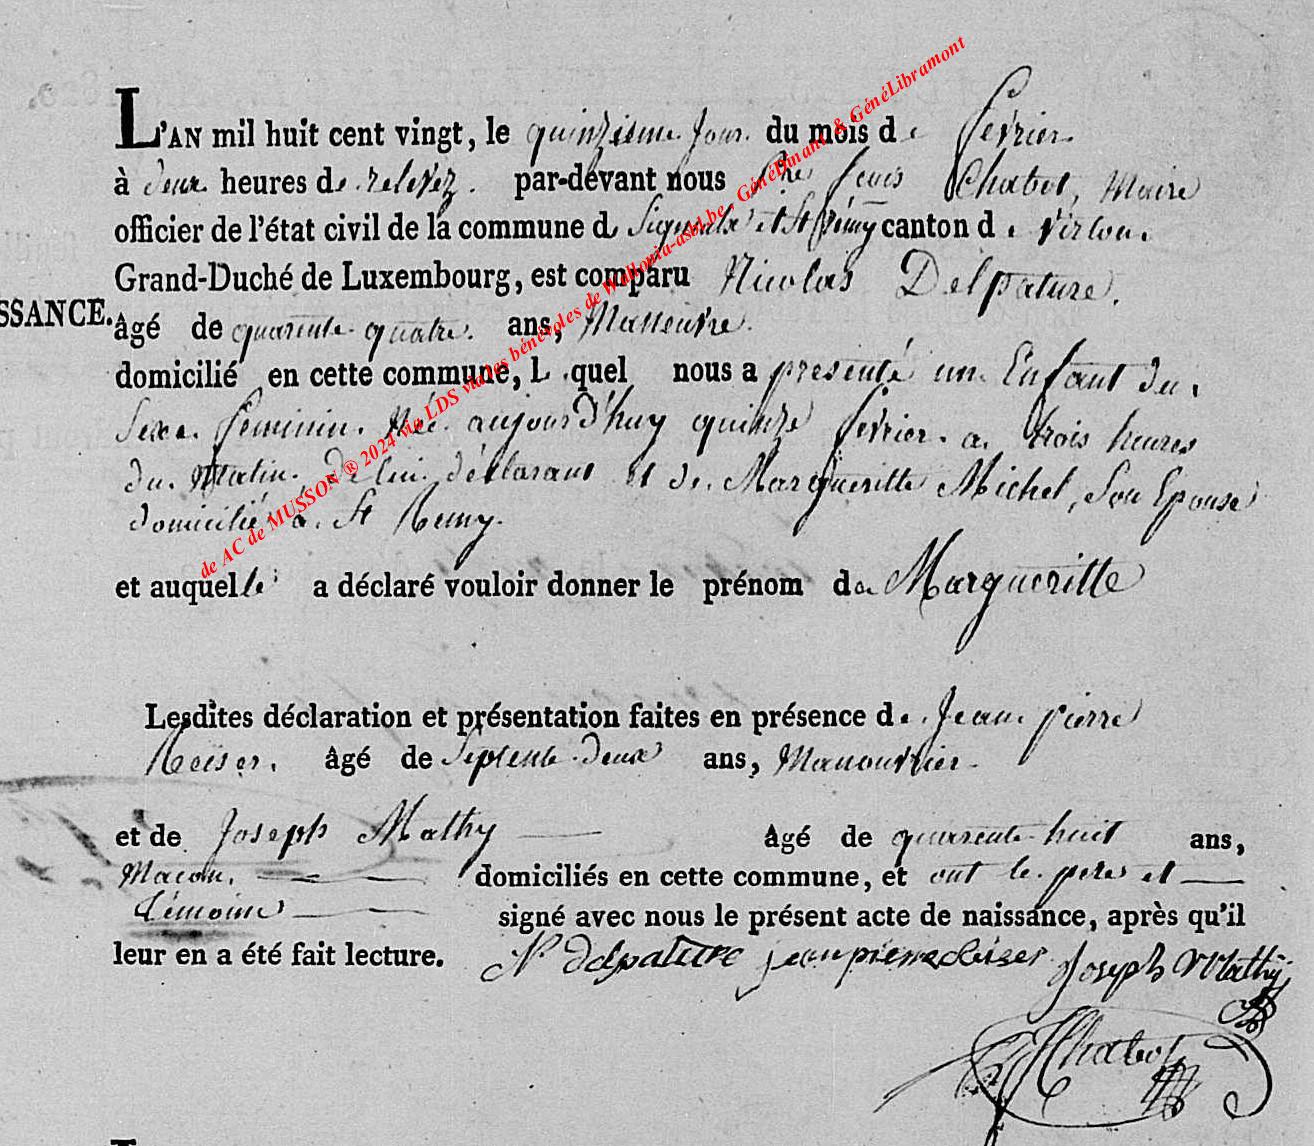 L'AN mil huit cent vingt, le quinzieme Jour du mois de fevrier
à deux heures de relevez. par-devant nous Louis Chabot, Maire
officier de l'état civil de la commune de Signeulx et St Rémy canton de virton
Grand-Duché de Luxembourg, est comparu Nicolas Delpature.
SSANCE. âgé de quarente quatre. ans, Manoeuvre.
domicilié en cette commune, Lequel nous a presenté un Enfant du
Sexe feminin. Néé aujourd'huy quinze fevrier a trois heures
du Matin, de lui déclarant et de Margueritte Michel, Son Epouse
domiciliéé à St Remy.
et auquelle a déclaré vouloir donner le prénom de Margueritte
Lesdites déclaration et présentation faites en présence de Jean pierre
âgé de Septente deux ans, Manouvrier
et de Joseph Mathy âgé de quarente huit ans,
Macon, domiciliés en cette commune, et ont le pere et
témoins signé avec nous le présent acte de naissance, après qu'il
leur en a été fait lecture. N. delpature jean pierre Joseph Mathÿ
Chabot
de AC de MUSSON ® 2024 via LDS via les bénévoles de Wallonia-asbl.be, GénéDinant & GénéLibramont